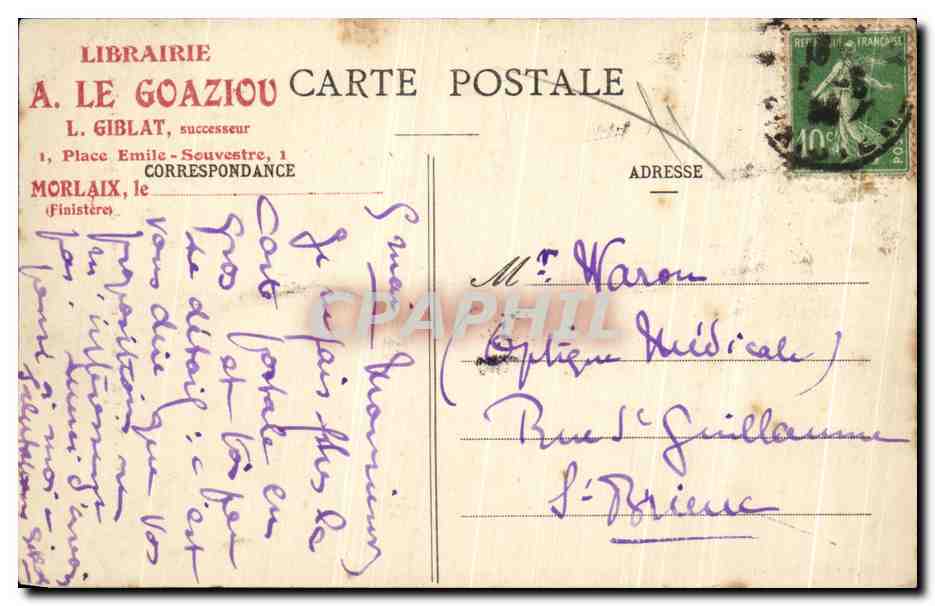 LIBRAIRIE
A. LE GOAZIOU
L. GIBLAT, successeur
1, Place Emile-Souvestre, 1
MORLAIX, le
(Finistère)
CARTE POSTALE
CORRESPONDANCE
ADRESSE
REPUBLIQUE FRANÇAISE
10c
POSTES
5 mai Monsieur
Je ne fais plus la
Carte postale en
gros et très peu
de détail : c'est
vous dire que vos
propositions ne
m'intéressent
pas. Merci d'avoir
pensé à moi
Salutations
Mr. Waron
(Optique Médicale)
Rue St Guillaume
St-Brieuc
CPAPHIL